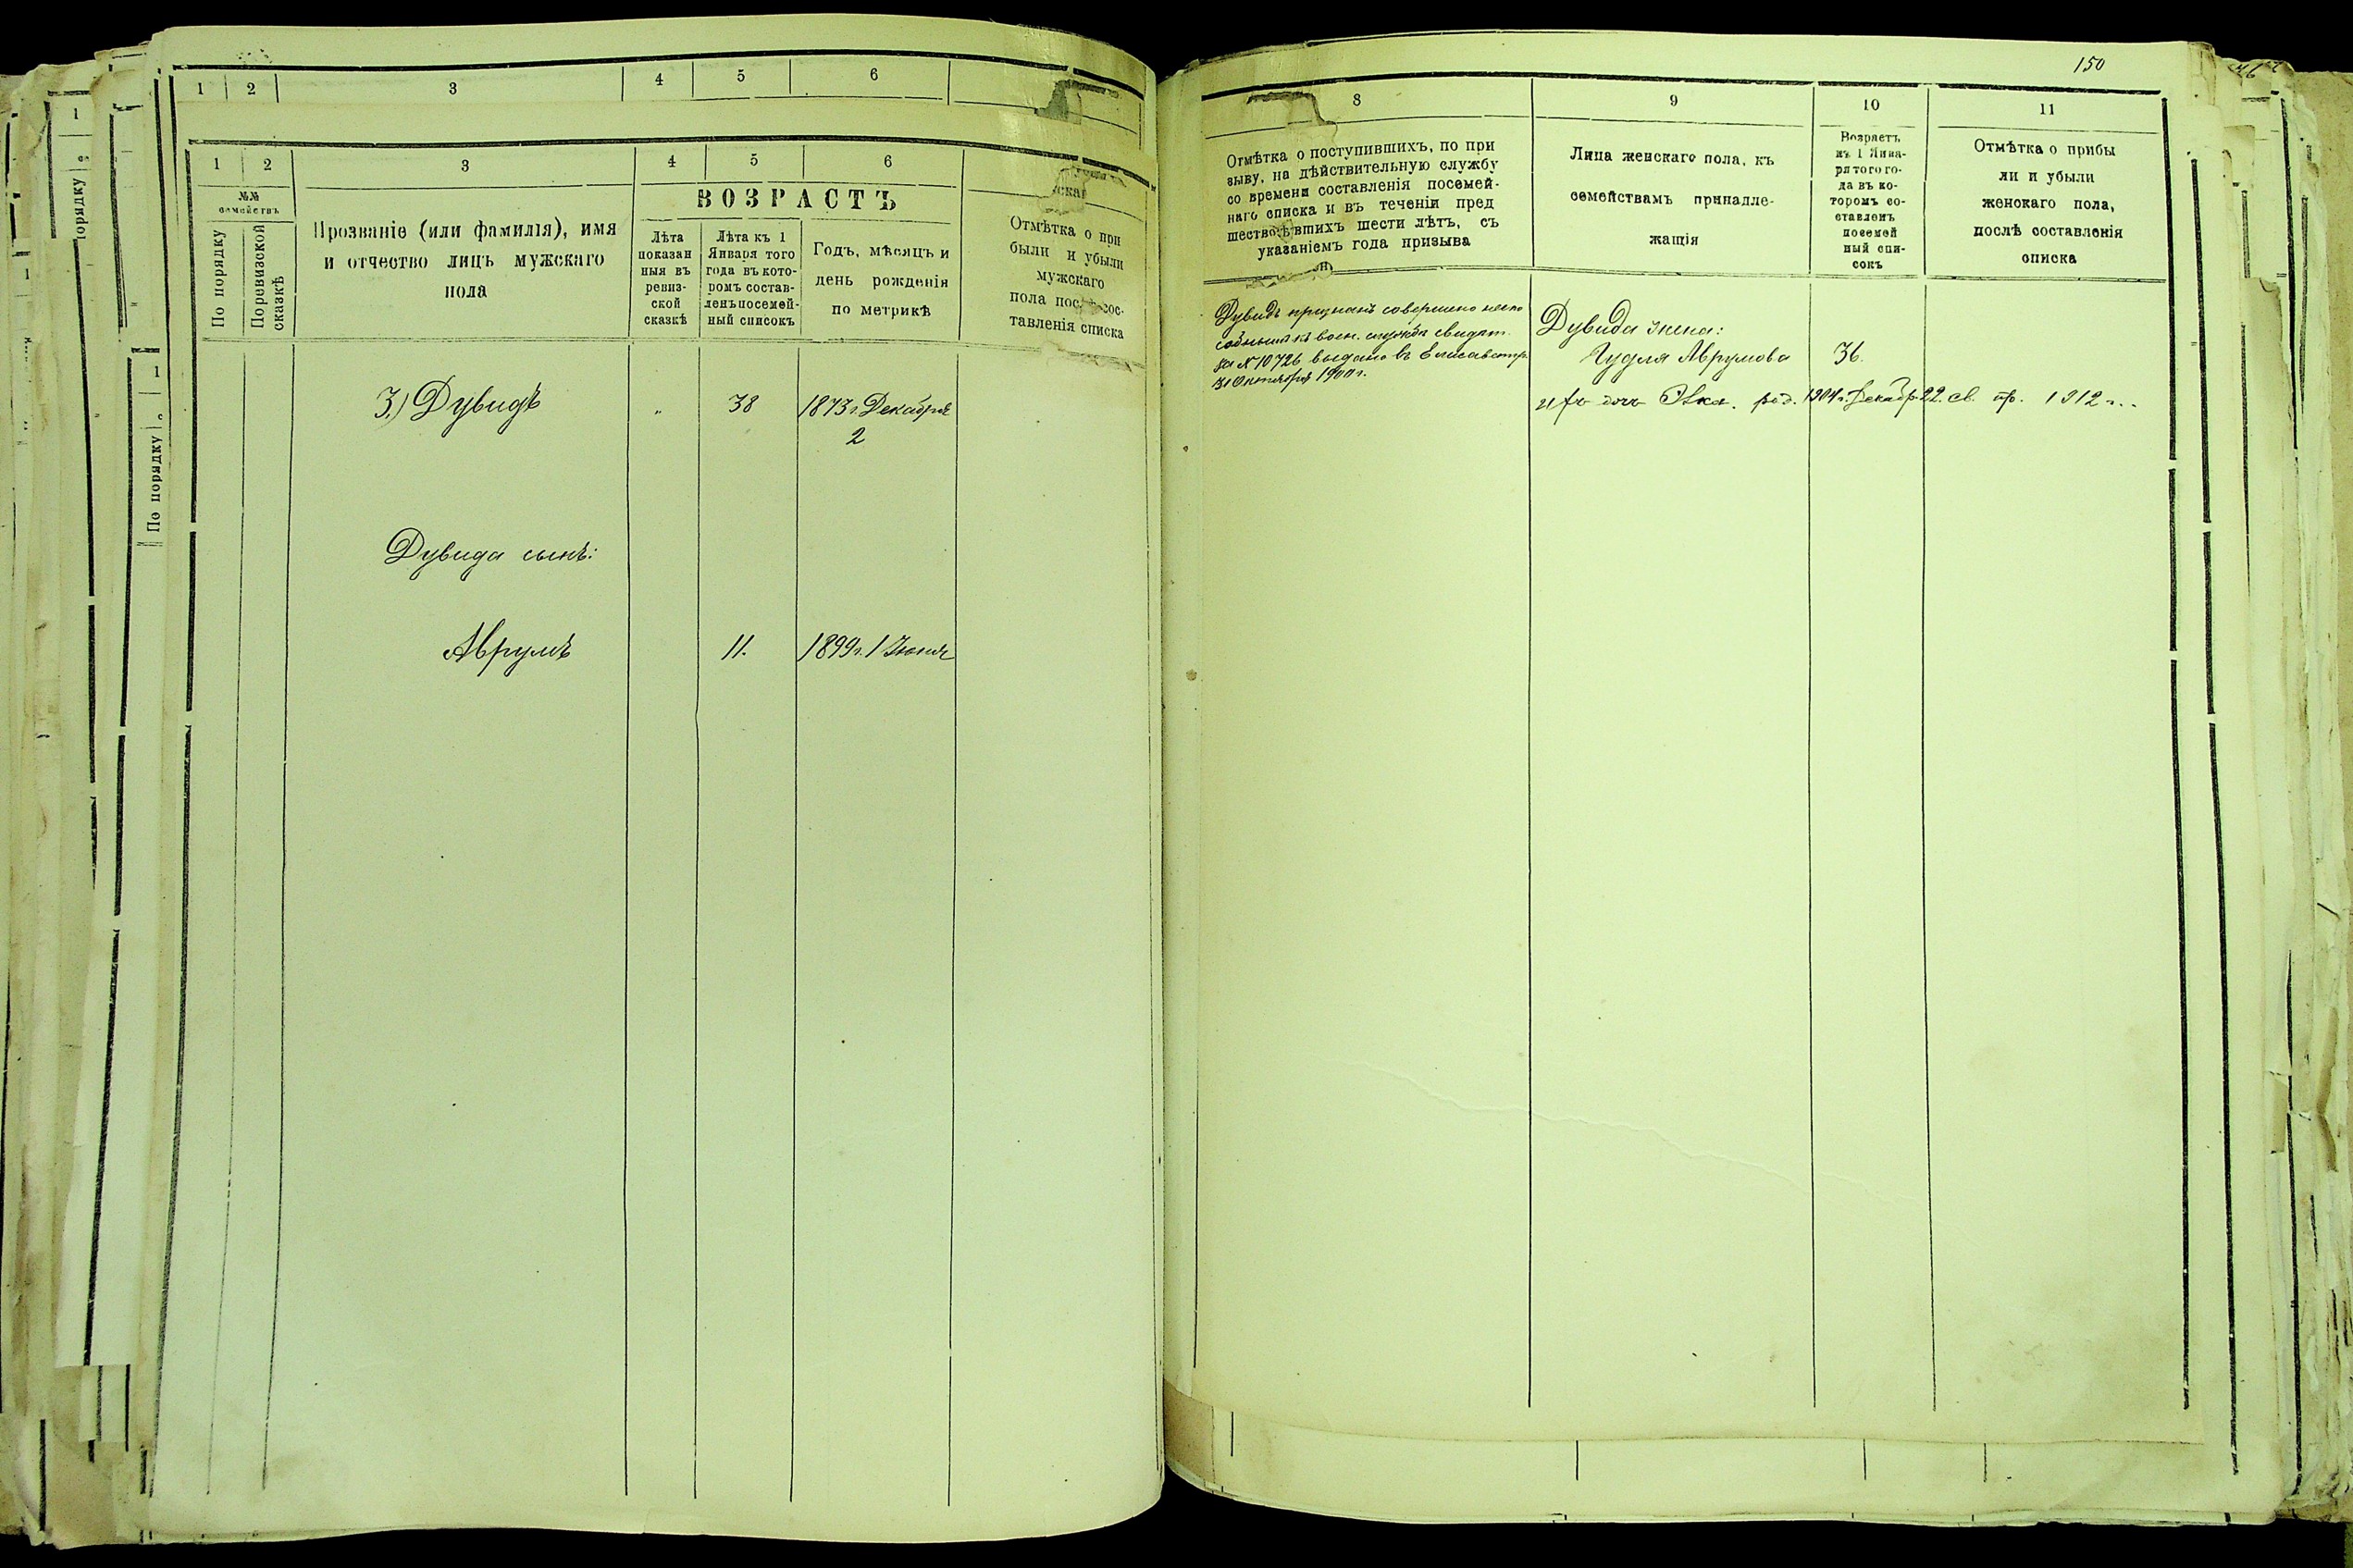 1 2 3 4 5 6
1 2 3 4 5 6
№№
семействъ
По порядку
По ревизской
сказкѣ
Прозваніе (или фамилія), имя
и отчество лицъ мужскаго
пола
ВОЗРАСТЪ
Лѣта
показан
ныя въ
ревиз-
ской
сказкѣ
Лѣта къ 1
Января того
года въ кото-
ромъ состав-
ленъ посемей-
ный списокъ
Годъ, мѣсяцъ и
день рожденія
по метрикѣ
Отмѣтка о при
были и убыли
мужскаго
пола послѣ сос-
тавленія списка
3.) Дувидъ " 38 1873 г. Декабря
2
Дувида сынъ:
Аврумъ 11. 1899 г. 1 Іюня
150
8 9 10 11
Отмѣтка о поступившихъ, по при
зыву, на дѣйствительную службу
со времени составленія посемей-
наго списка и въ теченіи пред
шествовавшихъ шести лѣтъ, съ
указаніемъ года призыва
Лица женскаго пола, къ
семействамъ принадле-
жащія
Возрастъ
къ 1 Янва-
ря того го-
да въ ко-
торомъ со-
ставленъ
посемей
ный спи-
сокъ
Отмѣтка о прибы
ли и убыли
женскаго пола,
послѣ составленія
списка
Дувидъ признанъ совершено неспо
собнымъ къ воен. службѣ свидѣт.
за № 10726 выдано въ Елисаветгр.
31 Октября 1900 г.
Дувида жена:
Гудля Аврумова 36.
дочь род. 1904 г. Декабр. 22. св. пр. 1912 г.
1
По порядку
1
порядку
1